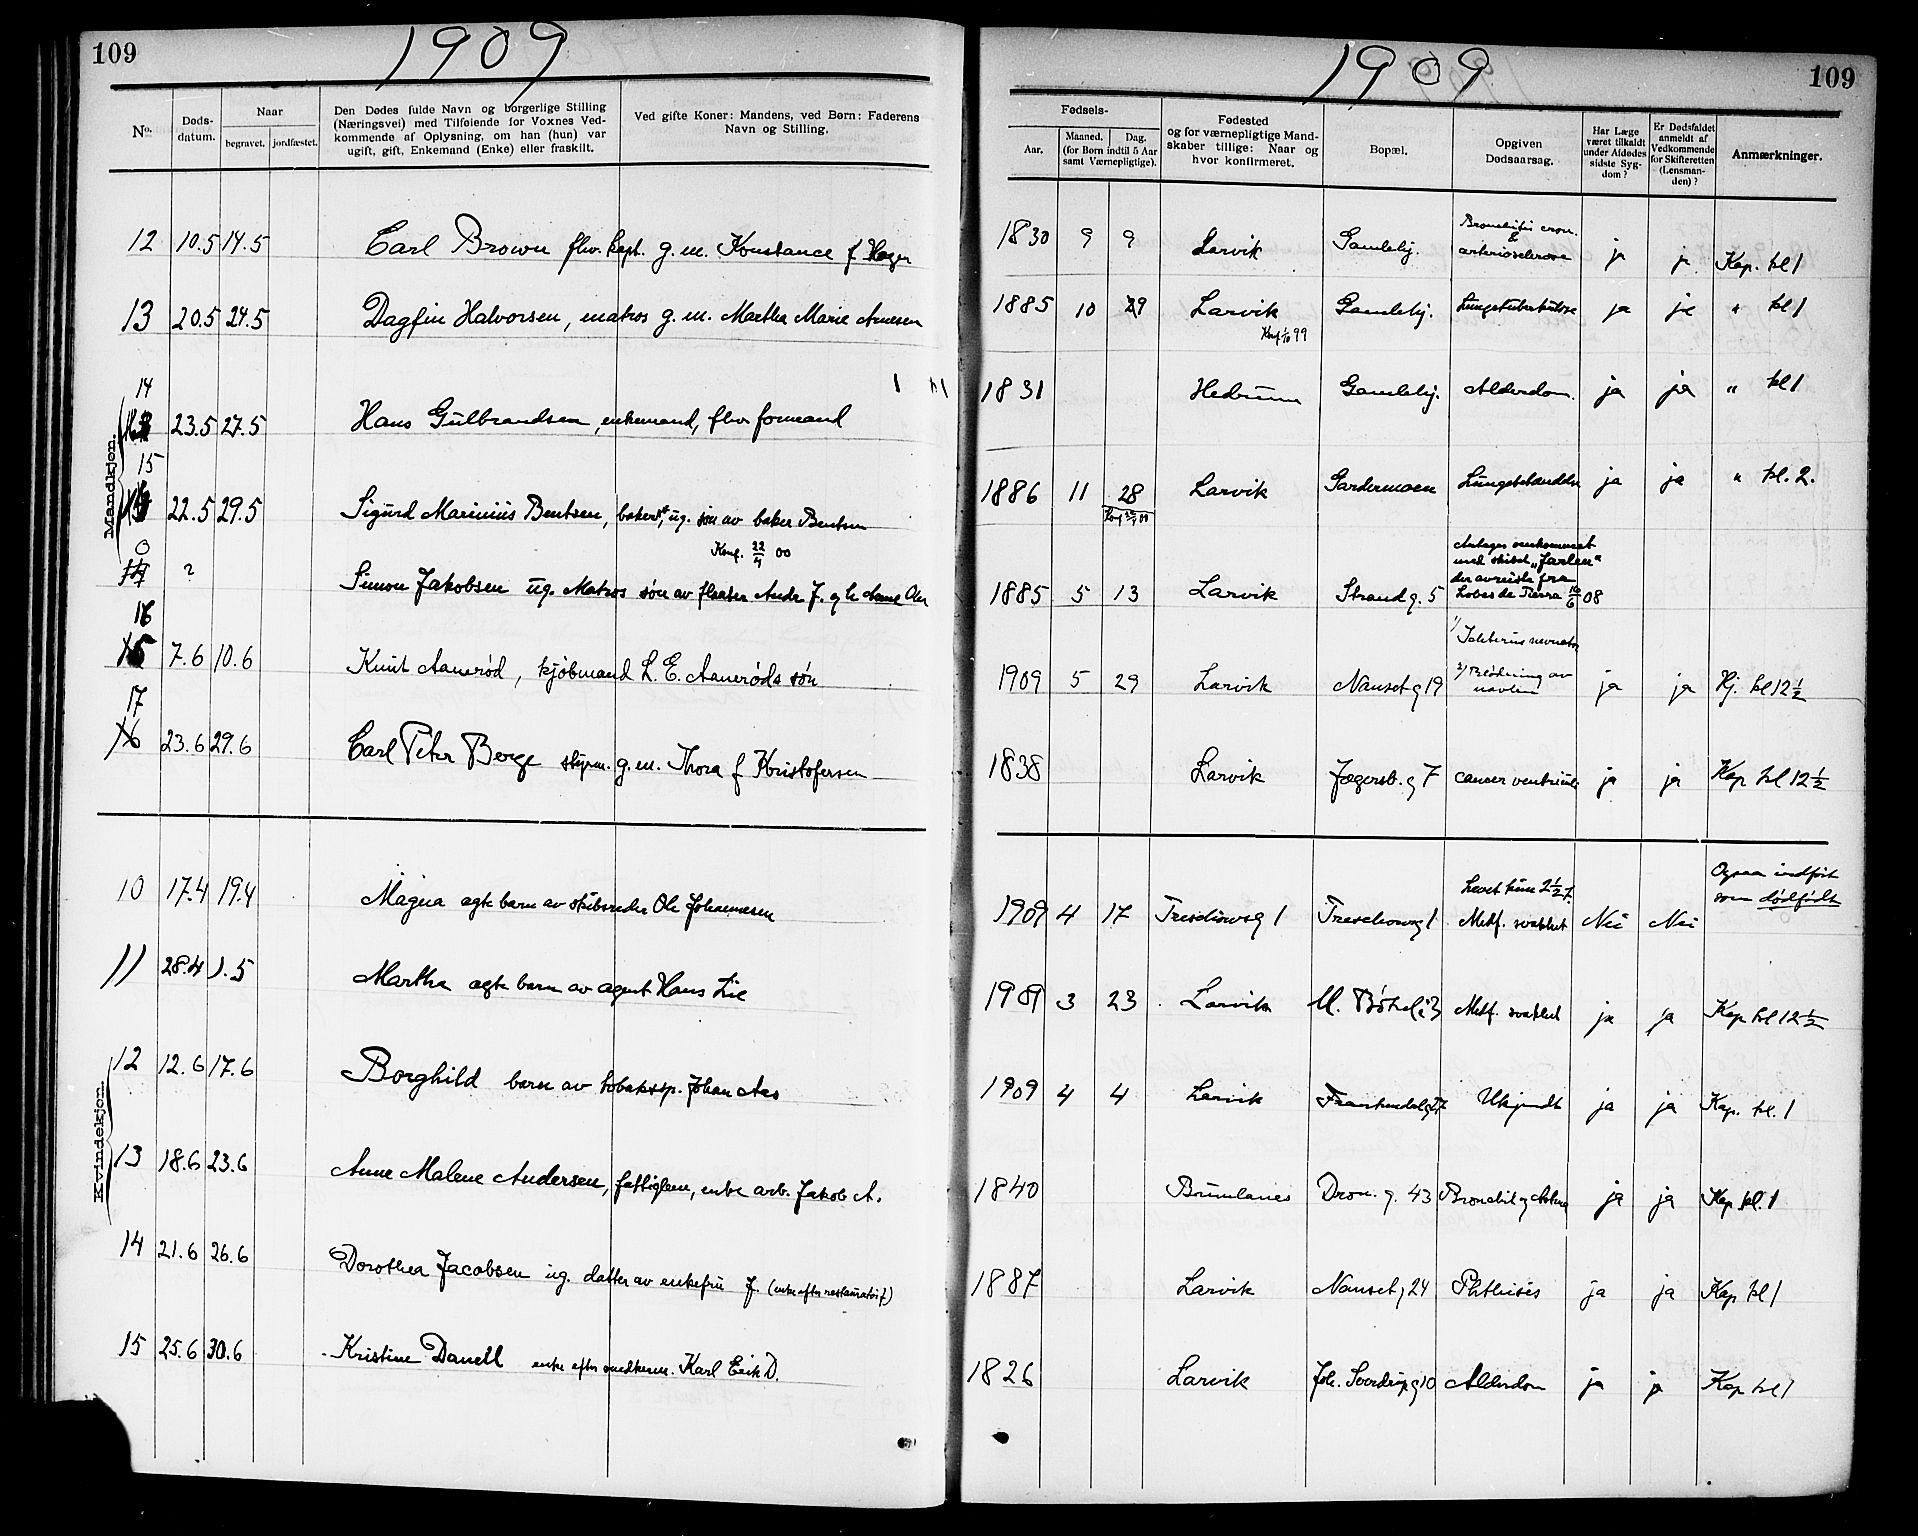 109
1909
No.
Døds-
datum.
Naar
begravet.
jordfæstet.
Den Dødes fulde Navn og borgerlige Stilling
(Næringsvei) med Tilføiende for Voxnes Ved-
kommende af Oplysning, om han (hun) var
ugift, gift, Enkemand (Enke) eller fraskilt.
Ved gifte Koner: Mandens, ved Børn: Faderens
Navn og Stilling.
Mandkjøn.
12 10.5 14.5 Carl Brown fhv. kapt. g. m. Konstance f
13 20.5 24.5 Dagfin Halvorsen, matros g. m. Martha Marie Arnesen
14
23.5 27.5 Hans Gulbrandsen, enkemand, fhv. formand
15
22.5 29.5 Sigurd Marinius Bentsen, ug. søn av baker Bentsen
Konf. 22/4 00
0
? Simon Jakobsen ug. Matros søn av
16
15 7.6 10.6 Knut Aanerød, kjøbmand L. E. Aanerøds søn
17
16 23.6 29.6 Carl Peter Berge styrm. g. m. Thora f Kristofersen
Kvindekjøn.
10 17.4 19.4 Magna egte barn av skibsreder Ole Johannesen
11 28.4 1.5 Martha egte barn av agent Hans Lie
12 12.6 17.6 Borghild barn av tobakssp. Johan Aas
13 18.6 23.6 Anne Malene Andersen, fattiglem, enke arb. Jakob A.
14 21.6 26.6 Dorothea Jacobsen ug. datter av enkefru J. (enke efter restauratør J.)
15 25.6 30.6 Kristine Danell enke efter snedkerm. Karl Erik D.
109
1909
Fødsels-
Aar.
Maaned.
Dag.
(for Børn indtil 5 Aar
samt Værnepligtige).
Fødested
og for værnepligtige Mand-
skaber tillige: Naar og
hvor konfirmeret.
Bopæl.
Opgiven
Dødsaarsag.
Har Læge
været tilkaldt
under Afdødes
sidste Syg-
dom?
Er Dødsfaldet
anmeldt af
Vedkommende
for Skifteretten
(Lensman-
den)?
Anmærkninger.
1830 9 9 Larvik Gamleby. Bronchitis cron. & arteriosclerose ja ja Kap. kl 1
1885 10 29 Larvik Gamleby. Lungetuberkulose ja ja " kl 1
Konf 1/10 99
1831 Hedrum Gamleby. Alderdom. ja ja " kl 1
1886 11 28 Larvik Gardermoen Lungebetændelse ja ja " kl. 2.
Antages omkommet
med skibet "Farlun"
der avreiste fra
1885 5 13 Larvik Strandg. 5 Lobos de Tierra 16/6 08
1) Ikterus neonator
1909 5 29 Larvik Nansetg 19 2) Blødning av navlen ja ja Hj. kl 12 1/2
1838 Larvik Jegersb. g 7 cancer ventriculi ja ja Kap kl 12 1/2
1909 4 17 Treschowsg 1 Treschowsg 1 Levet kun 2 1/2 t. Medf. svakhet Nei Nei Ogsaa indført som dødfødt
1909 3 23 Larvik Medf. svakhet ja ja Kap kl 12 1/2
1909 4 4 Larvik Ukjendt ja ja Kap. kl. 1
1840 Brunlanes Dron. g. 43 Bronchit og Astma ja ja Kap kl. 1
1887 Larvik Nansetg 24 Phthisis ja ja Kap kl 1
1826 Larvik Joh. Sverdrupg 10 Alderdom ja ja Kap kl 1